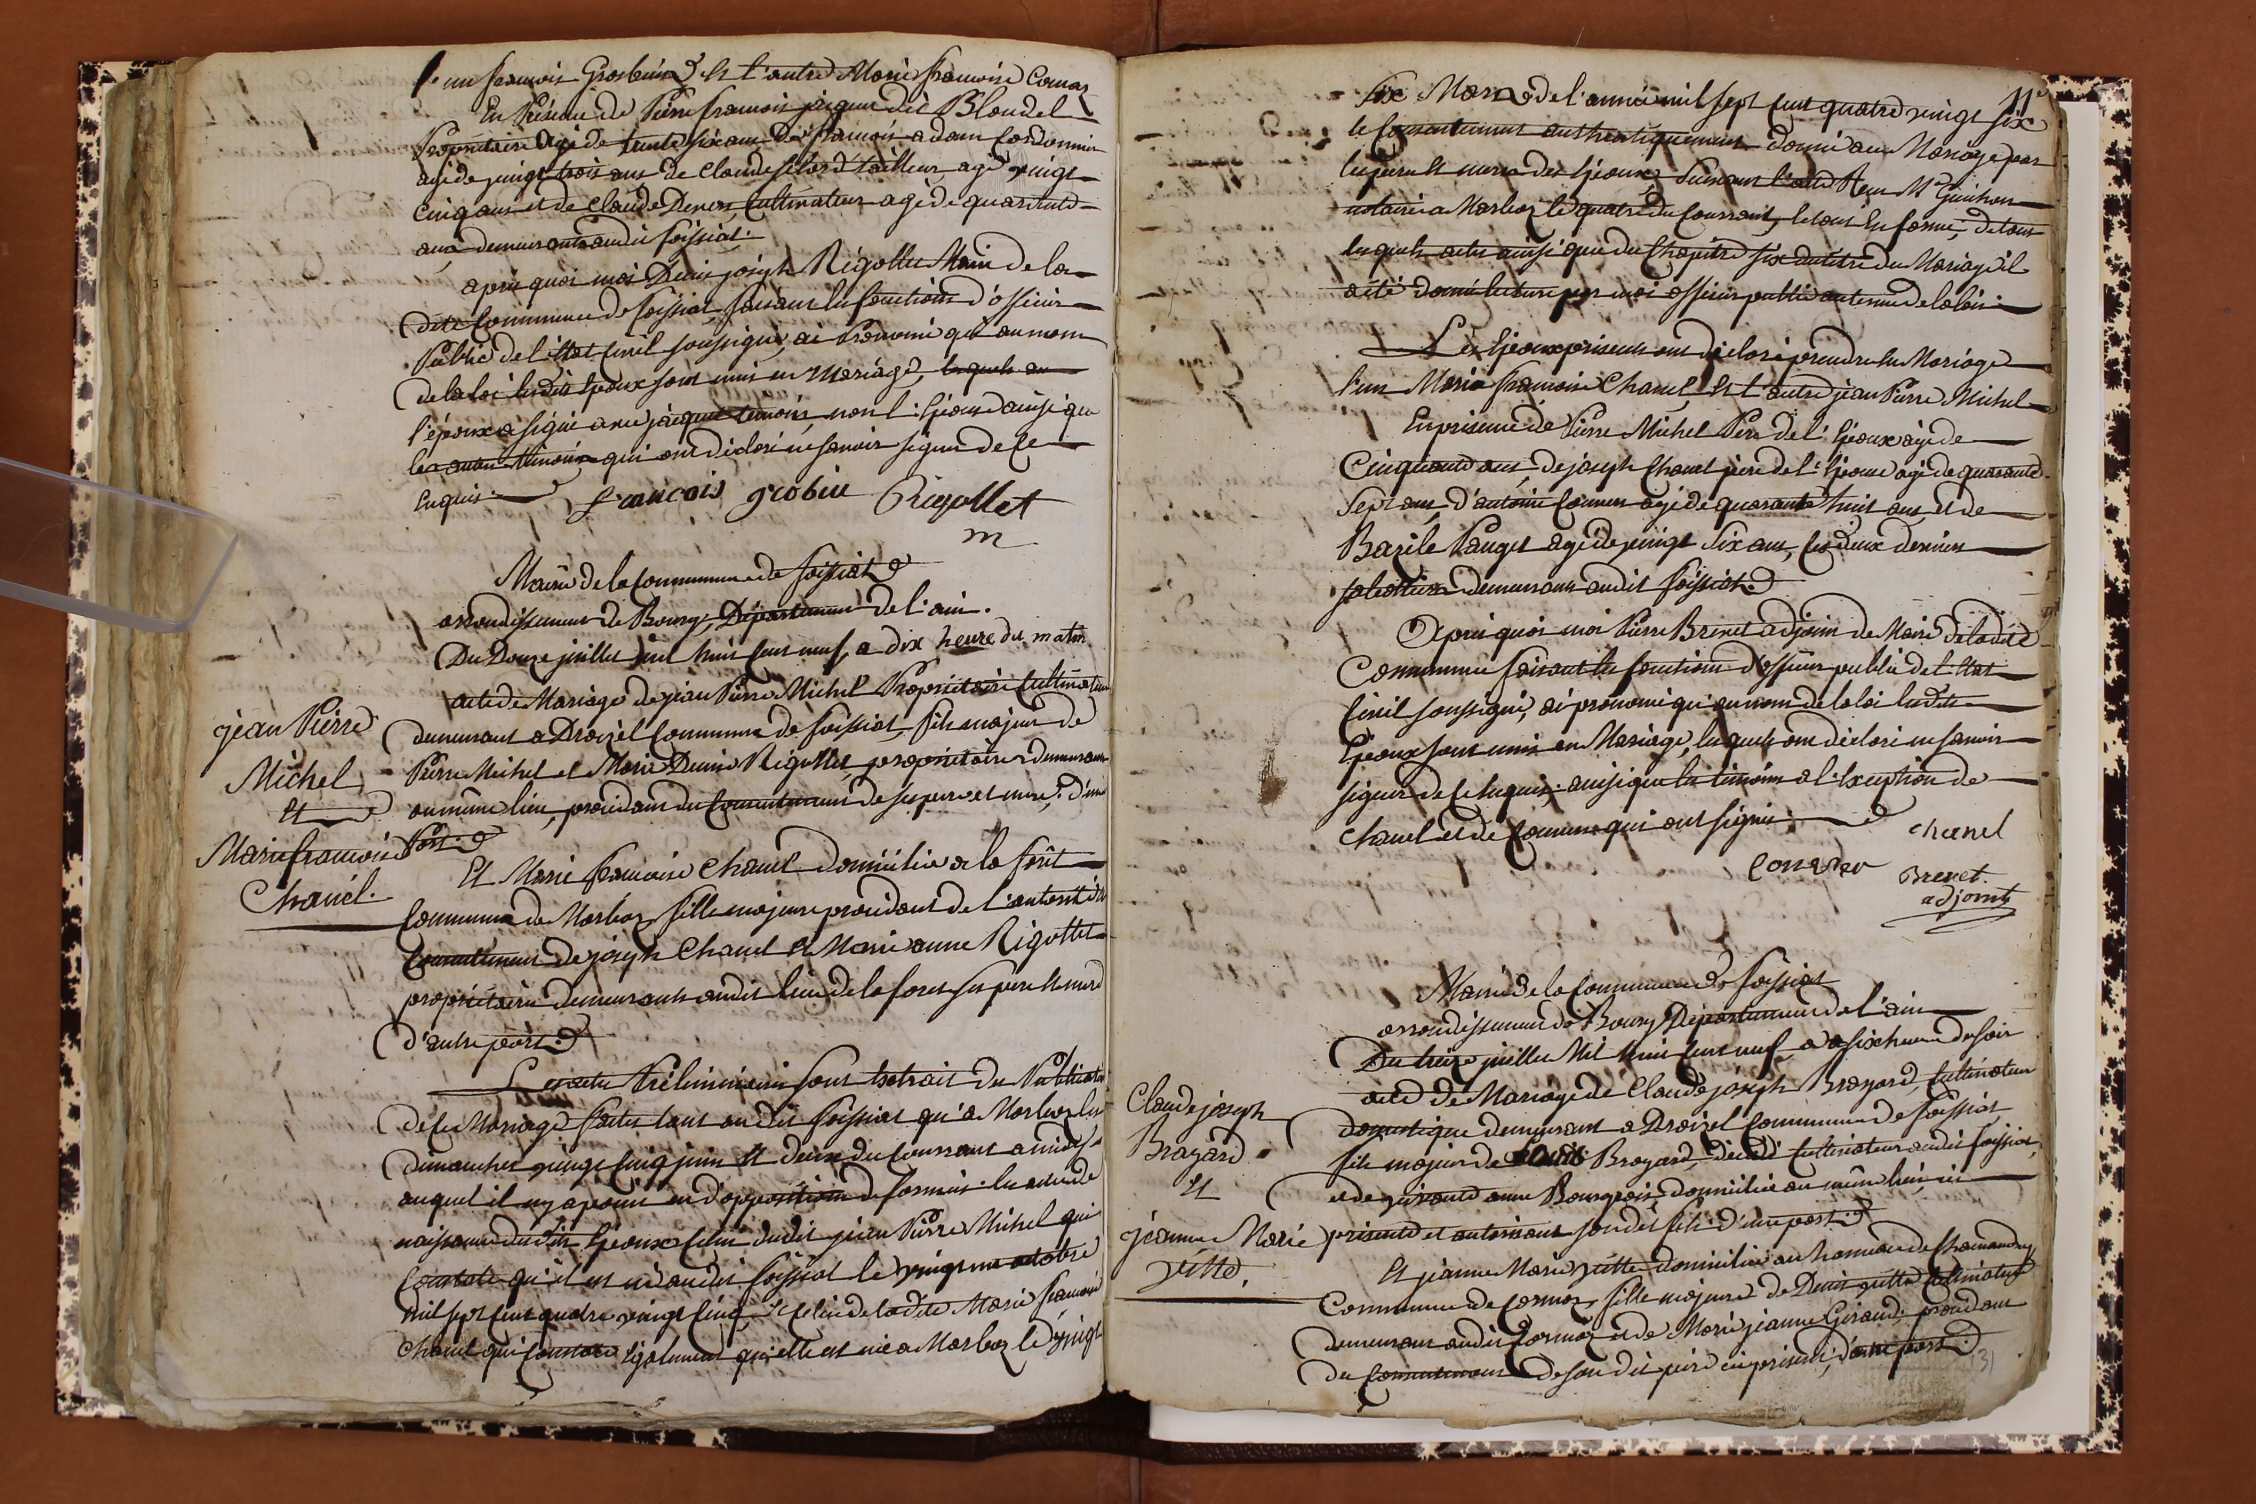 l'un francois Grosbuin et l'autre Marie francoise Comas
En Présence de Pierre francois jacquet dit Blondel
Propriétaire agé de trente six ans De francois adam Cordonnier
agé de vingt trois ans de Claude tailleur agé vingt
cinq ans et de Claude Deners Cultivateur agé de quarante
ans demeurants audit foissiat.
après quoi moi Denis joseph Rigollet Maire de la
dite Commune de foissiat faisant les fonctions d'officier
Public de l'état Civil soussigné, ai Prononcé qu'au nom
de la loi lesdits Epoux sont unis en Mariage, lesquels
l'épouxa signé avec jacquet temoin, non l'Epouse ainsi que
les autres temoins qui ont déclaré ne savoir signer de ce
Enquis. francois grobin Rigollet
m
Mairie de la Commune de foissiat
arrondissement de Bourg, Département de l'ain.
Du Douze juillet mil huit cent neuf, a dix heure du matin
acte de Mariage de jean Pierre Michel Propriétaire Cultivateur
jean Pierre
Michel
Et
Marie francoise
Chanel.
demeurant a Droizel Commune de foissiat, fils majeur de
Pierre Michel et Marie Denise Rigollet, propriétaires demeurans
au même lieu, procédant du Consentement de ses pere et mere, d'une
Part.
Et Marie francoise Chanel domiciliée a la forêt
Commune de Marboz fille majeure procédant de l'autorité et
Consentement de joseph Chanel et Marie anne Rigollet
propriétaires demeurants audit lieu de la forest ses pere et mere
d'autre part.
Les actes Préliminaires sont Extrait des Publications
de ce Mariage faites tant audit foissiat qu'a Marboz les
dimanches vingt cinq juin et deux du Courrant a midi
auquel il n'y a point eu d'opposition de formée. les actes de
naissance desdits Epoux, celui dudit jean Pierre Michel qui
Constate qu'il est né audit foissiat le vingt un octobre
mil sept cent quatre vingt cinq et celui de la dite Marie francoise
Chanel qui Constate Egalement qu'elle est née a Marboz le vingt
11
six Mars de l'année mil sept cent quatre vingt six
le Consentement authentiquement donné au Mariage par
les peres et meres des Epoux, suivant l'acte Reçu Me Guichon
notaire a Marboz le quatre du Courrant, le tout En forme, de tous
lesquels actes ainsi que du Chapitre six au titre du Mariage il
a été donné lecture par moi officier public au terme de la loi.
Les Epoux présents ont déclaré prendre En Mariage
l'un Marie francoise Chanel, Et l'autre jean Pierre Michel
En présence de Pierre Michel Pere de l'Epoux agé de
Cinquante ans, de joseph Chanel pere de l'Epouse agé de quarante
sept ans, d'antoine Convers agé de quarante huit ans et de
Bazile Pauget agé de vingt six ans, ces deux derniers
demeurans audit foissiat
Après quoi moi Pierre Brevet adjoint de Maire de la dite
Commune faisant les fonctions d'officier public de l'Etat
Civil soussigné, ai prononcé qu'au nom de la loi lesdits
Epoux sont unis en Mariage, lesquels ont déclaré ne savoir
signer de ce Enquis; ainsi que les témoins a l'Exception de
Chanel et de Convers qui ont signé.
chanel
Conver Brevet
adjoint
Mairie de la Commune de foissiat
arrondissement de Bourg Département de l'ain
Du treize juillet Mil huit cent neuf, a six heure du soir
acte de Mariage de Claude joseph Brayard, Cultivateur
Claude joseph
Brayard
Et
jeanne Marie
vitte.
domestique demeurant a Droizel Commune de foissiat
fils majeur de Brayard, décédé Cultivateur audit foissiat,
et de vivante anne Bourgeois, domiciliée au même lieu, ici
présente et autorisant son dit fils. d'une part.
Et jeanne Marie vitte domiciliée au hameau de
Commune de Cormoz, fille majeure de Denis vitte Cultivateur
demeurant audit Cormoz et de Marie jeanne Giraud, procédant
du Consentement de son dit père ici présent, d'autre part.
31